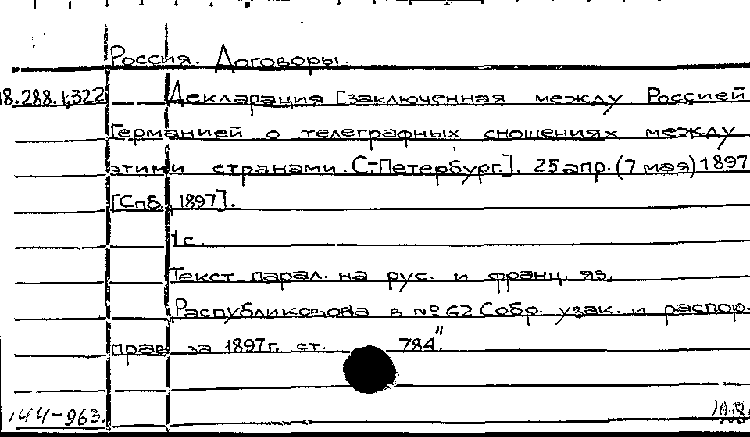 Россия. Договоры.
18.288.1;322 Декларация [заключенная между Россией
Германией о телеграфных сношениях между
этими странами. С.-Петербург.]. 25 апр. (7 мая) 1897
[Спб, 1897].
1 с.
Текст парал. на рус. и франц. яз.
Распубликована в № 62 Собр. узак. и распор.
прав. за 1897г. ст. 784."
144-963.